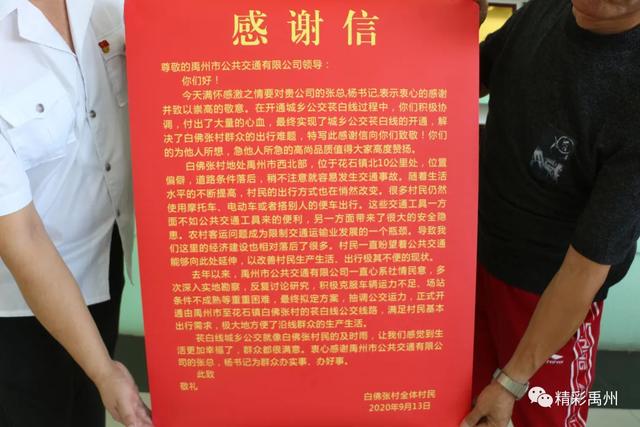 感谢信
尊敬的禹州市公共交通有限公司领导：
你们好！
今天满怀感激之情要对贵公司的张总,杨书记,表示衷心的感谢
并致以崇高的敬意。在开通城乡公交苌白线过程中，你们积极协
调，付出了大量的心血，最终实现了城乡公交苌白线的开通，解
决了白佛张村群众的出行难题，特写此感谢信向你们致敬！你们
的为他人所想，急他人所急的高尚品质值得大家高度赞扬。
白佛张村地处禹州市西北部，位于花石镇北10公里处，位置
偏僻，道路条件落后，稍不注意就容易发生交通事故。随着生活
水平的不断提高，村民的出行方式也在悄然改变。很多村民仍然
使用摩托车、电动车或者搭别人的便车出行。这些交通工具一方
面不如公共交通工具来的便利，另一方面带来了很大的安全隐
患。农村客运问题成为限制交通运输业发展的一个瓶颈。导致我
们这里的经济建设也相对落后了很多。村民一直盼望着公共交通
能够向此处延伸，以改善村民生产生活、出行极其不便的现状。
去年以来，禹州市公共交通有限公司一直心系社情民意，多
次深入实地勘察，反复讨论研究，积极克服车辆运力不足、场站
条件不成熟等重重困难，最终拟定方案，抽调公交运力，正式开
通由禹州市至花石镇白佛张村的苌白线公交线路，满足村民基本
出行需求，极大地方便了沿线群众的生产生活。
苌白线城乡公交就像白佛张村民的及时雨，让我们感觉到生
活更加幸福了，群众都很满意。衷心感谢禹州市公共交通有限公
司的张总，杨书记为群众办实事、办好事。
此致
敬礼
白佛张村全体村民
2020年9月13日
精彩禹州